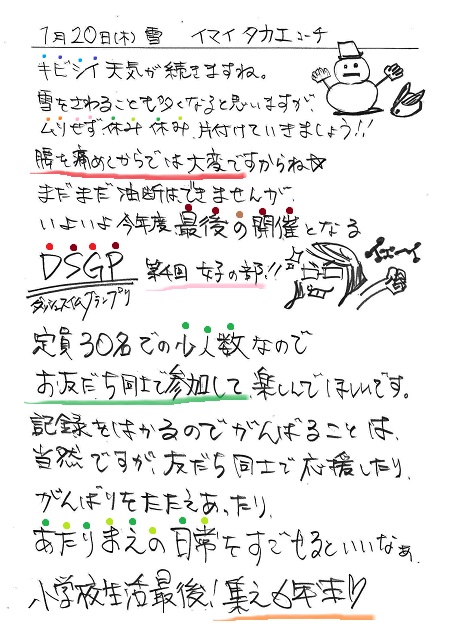 1月20日(木) 雪 イマイ タカエコーチ
キビシイ天気が続きますね。
雪をさわることも多くなると思いますが、
ムリせず、休み 休み 片付けていきましょう!!
腰を痛めてからでは大変ですからね☆
まだまだ油断はできませんが、
いよいよ今年度 最後の開催となる
DSGP 第4回 女子の部!! イェーイ
ダッシュスイムグランプリ
定員30名での少人数なので
お友だち同士で参加して、楽しんでほしいです。
記録をはかるのでがんばることは、
当然ですが、友だち同士で応援したり、
がんばりをたたえあったり、
あたりまえの日常をすごせるといいなぁ、
小学校生活最後! 集え6年生♡